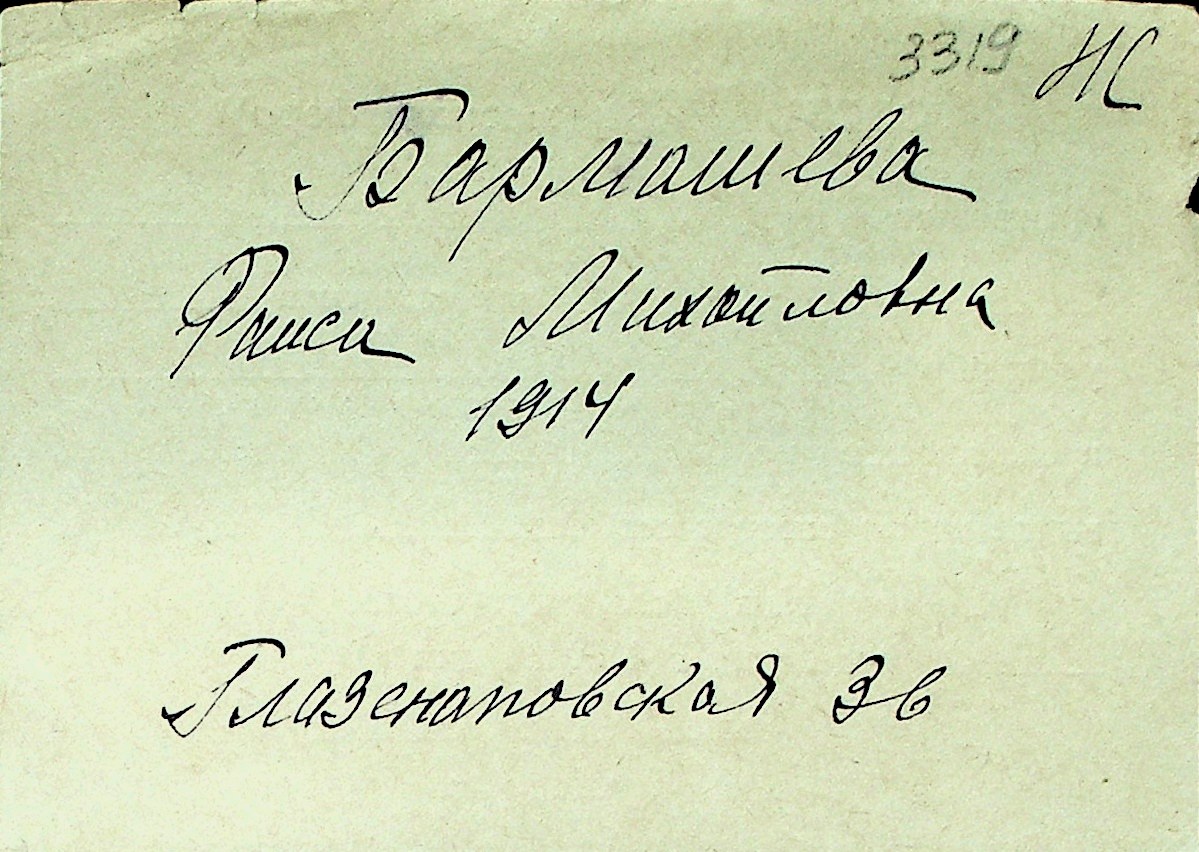 3319 НС
Бармашева
Раиса Михайловна
1914
Глазенаповская 3в